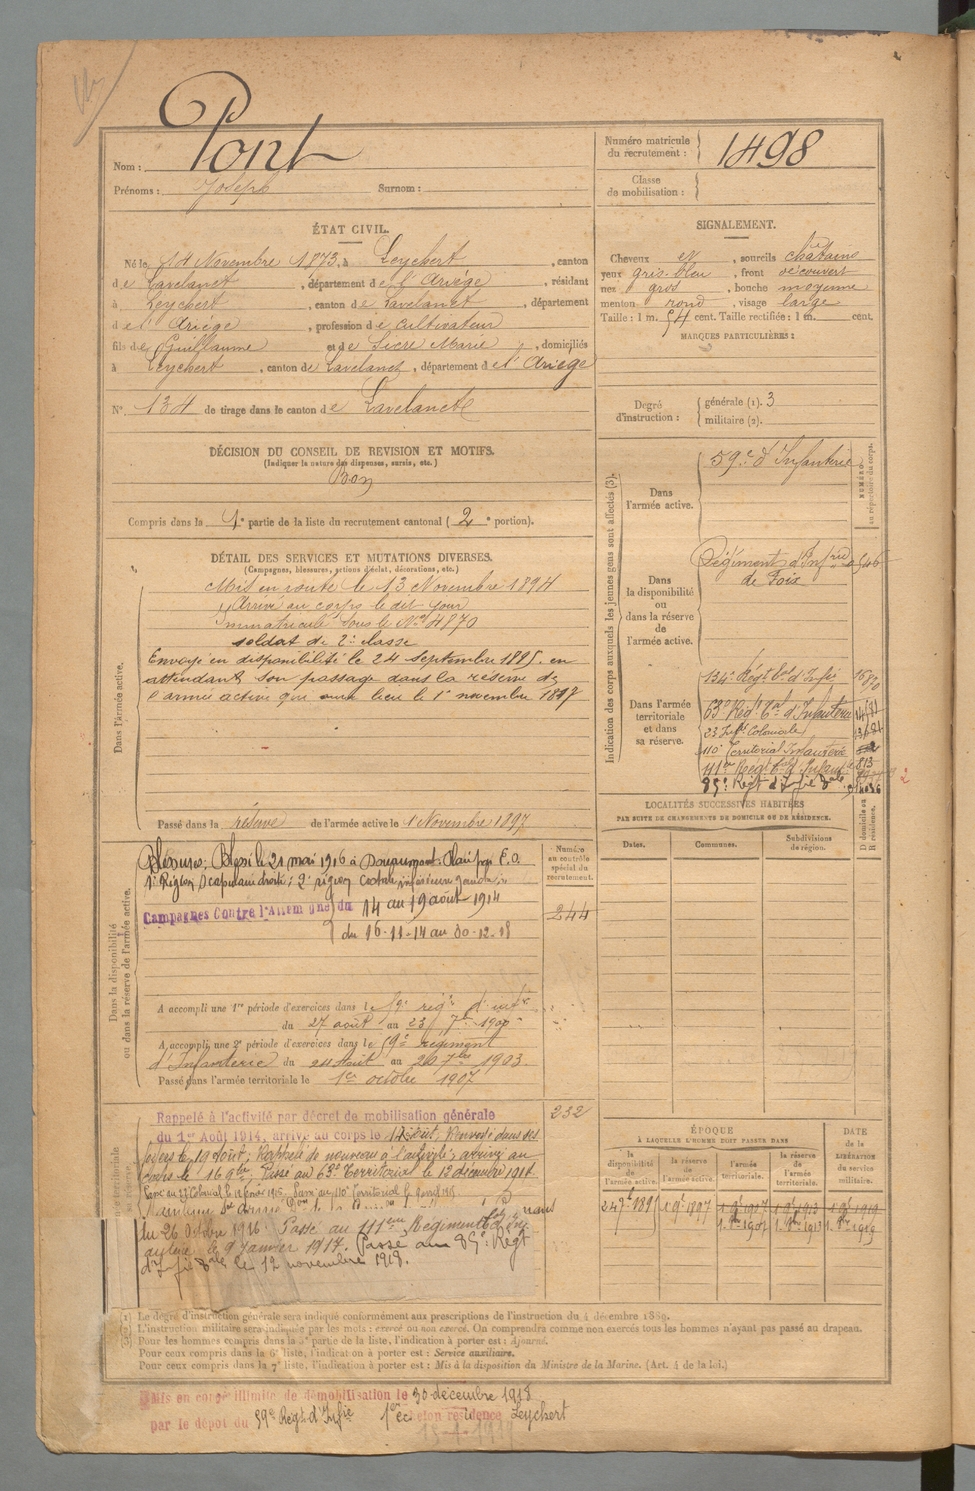 Nom : Pont
Prénoms : Joseph Surnom :
Numéro matricule du recrutement : 1498
Classe de mobilisation :
ÉTAT CIVIL.
Né le 14 Novembre 1873, à Leychert, canton
de Lavelanet, département de l'Ariège, résidant
à Leychert, canton de Lavelanet, département
de l'Ariège, profession de cultivateur
fils de Guillaume et de Sicre Marie, domiciliés
à Leychert, canton de Lavelanet, département de l'Ariège
N° 134 de tirage dans le canton de Lavelanet
SIGNALEMENT.
Cheveux et, sourcils châtains
yeux gris-bleu, front découvert
nez gros, bouche moyenne
menton rond, visage large
Taille : 1 m. 54 cent. Taille rectifiée : 1 m. cent.
MARQUES PARTICULIÈRES :
Degré d'instruction : générale (1). 3
militaire (2).
DÉCISION DU CONSEIL DE REVISION ET MOTIFS.
(Indiquer la nature des dispenses, sursis, etc.)
Bon
Compris dans la 1e partie de la liste du recrutement cantonal ( 2e portion).
DÉTAIL DES SERVICES ET MUTATIONS DIVERSES.
(Campagnes, blessures, actions d'éclat, décorations, etc.)
Dans l'armée active.
Mis en route le 13 Novembre 1894
Arrivé au corps le dit jour
Immatriculé sous le No 4870
soldat de 2e classe
Envoyé en disponibilité le 24 septembre 1895. en
attendant son passage dans la réserve de
l'armée active qui aura lieu le 1er novembre 1897
Passé dans la réserve de l'armée active le 1 Novembre 1897
Indication des corps auxquels les jeunes gens sont affectés (3).
NUMÉRO au répertoire du corps.
Dans l'armée active.
59e d'Infanterie
Dans la disponibilité ou dans la réserve de l'armée active.
Régiment d'Infrie
de Foix
Dans l'armée territoriale et dans sa réserve.
134e Régt tal d'Infie
63e Régt tal d'Infanterie
23 Inft Coloniale
110e Territorial Infanterie
111em Régt tal d'Infant
85e Régt d'Infie tale
LOCALITÉS SUCCESSIVES HABITÉES
PAR SUITE DE CHANGEMENTS DE DOMICILE OU DE RÉSIDENCE.
Dates. Communes. Subdivisions de région. D domicile ou R résidence.
Dans la disponibilité ou dans la réserve de l'armée active.
Numéro au contrôle spécial du recrutement.
Blessures : Blessé le 21 mai 1916 à Douaumont. Plaie par E.O.
1° Région scapulaire droite ; 2° région costale inférieure gauche
Campagnes Contre l'Allemagne du 14 au 19 août 1914
du 16-11-14 au 30-12-18
244
A accompli une 1re période d'exercices dans le 59e régt d'infie
du 27 août au 23 7bre 1900
A accompli une 2e période d'exercices dans le 59e régiment
d'Infanterie du 24 Août au 20 7bre 1903.
Passé dans l'armée territoriale le 1er octobre 1907
232
Rappelé à l'activité par décret de mobilisation générale
du 1er Août 1914, arrivé au corps le 14 août, Renvoyé dans ses
foyers le 19 août ; Rappelé de nouveau à l'activité ; arrivé au
corps le 16 9bre, Passé au 63e Territorial le 12 décembre 1914
du 26 Octobre 1916 Passé au 111em Régiment
le 9 Janvier 1917. Passé au 85e Régt
d'Infie tale le 12 novembre 1918.
ÉPOQUE
À LAQUELLE L'HOMME DOIT PASSER DANS
la disponibilité de l'armée active. la réserve de l'armée active. l'armée territoriale. la réserve de l'armée territoriale.
DATE de la LIBÉRATION du service militaire.
24 7bre 1895 1 9bre 1897 1 9bre 1907 1 9bre 1913 1 9bre 1919
1. 8bre 1907 1. 8bre 1913 1. 8bre 1919
Le degré d'instruction générale sera indiqué conformément aux prescriptions de l'instruction du 4 décembre 1889.
L'instruction militaire sera indiquée par les mots : exercé ou non exercé. On comprendra comme non exercés tous les hommes n'ayant pas passé au drapeau.
Pour les hommes compris dans la 5e partie de la liste, l'indication à porter est : Ajourné.
Pour ceux compris dans la 6e liste, l'indication à porter est : Service auxiliaire.
Pour ceux compris dans la 7e liste, l'indication à porter est : Mis à la disposition du Ministre de la Marine. (Art. 4 de la loi.)
Mis en congé illimité de démobilisation le 30 décembre 1918
par le dépôt du 59e Régt d'Infie 1er éc elon résidence Leychert